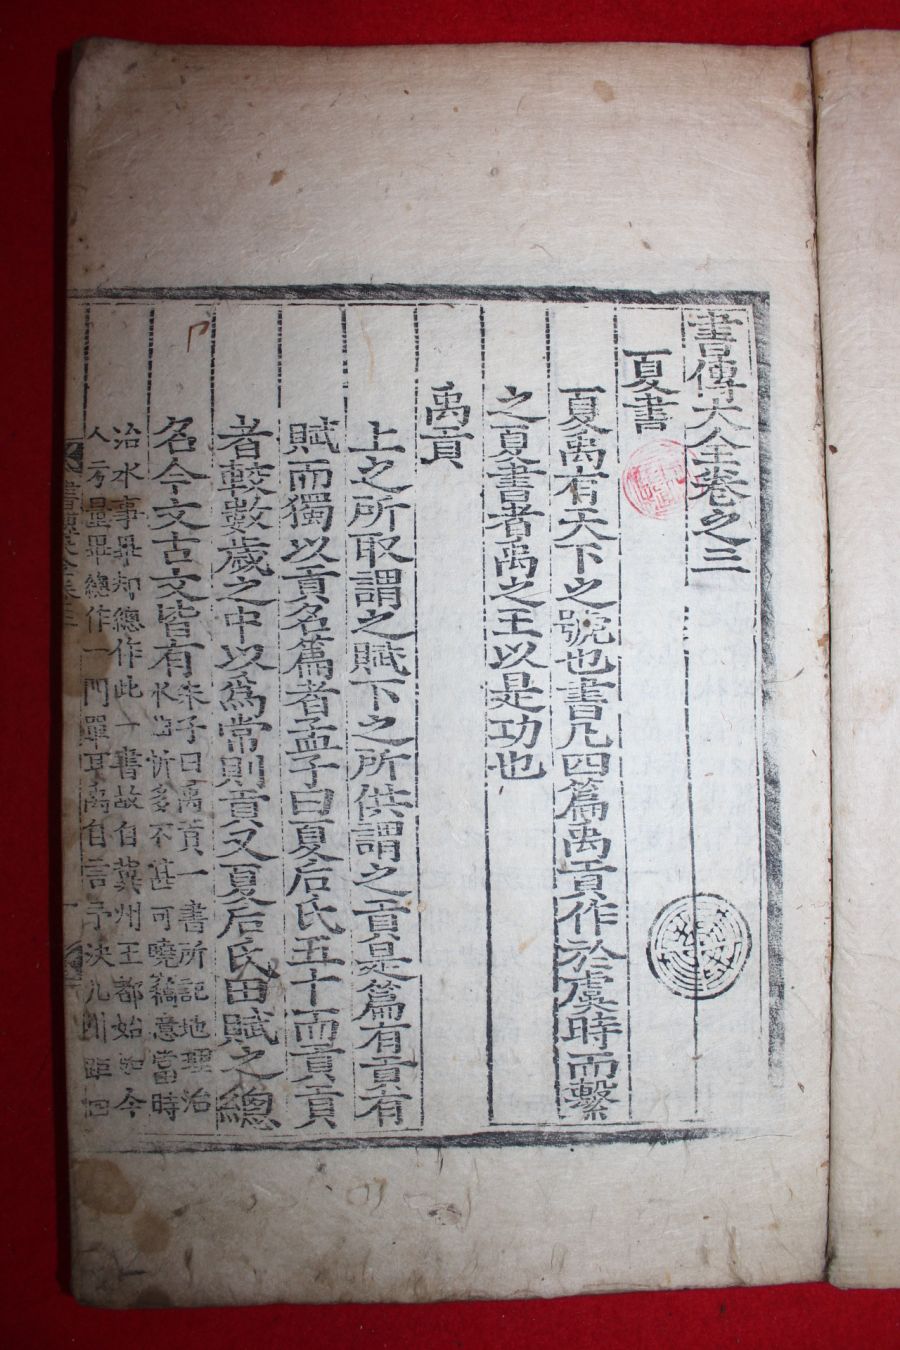 書傳大全卷之三
夏書
夏禹有天下之號也書凡四篇禹貢作於虞時而繫
之夏書者禹之王以是功也
禹貢
上之所取謂之賦下之所供謂之貢是篇有貢有
賦而獨以貢名篇者孟子曰夏后氏五十而貢貢
者較數歲之中以爲常則貢又夏后氏田賦之總
名今文古文皆有
朱子曰禹貢一書所記地理治
水曲折多不甚可曉竊意當時
治水事畢却總作此一書故自冀州王都始如今
人方量畢總作一門單耳禹自言予決九川距四